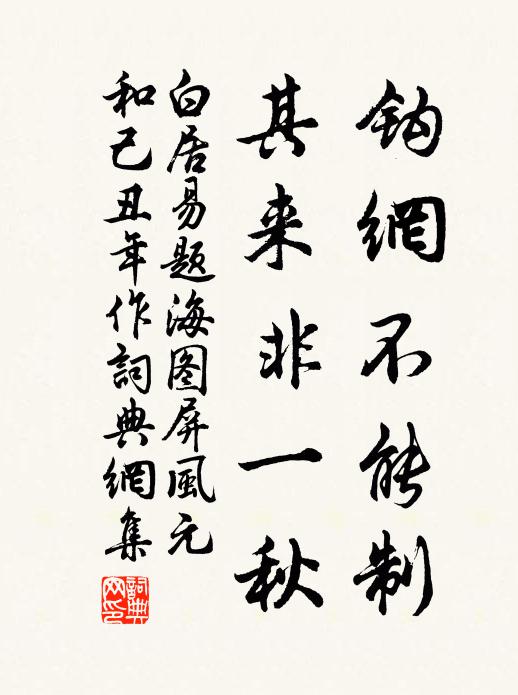 鈎網不能制
其来非一秋
白居易題海图屏風元
和己丑年作詞典網集
詞典網印